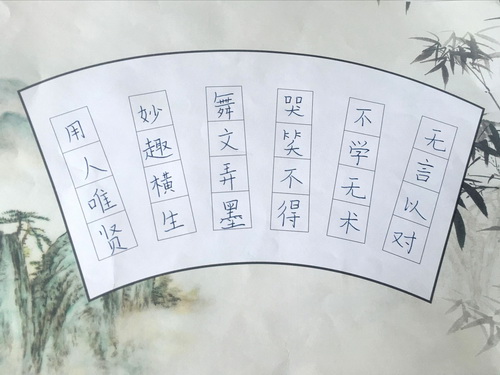 用人唯贤
妙趣横生
舞文弄墨
哭笑不得
不学无术
无言以对